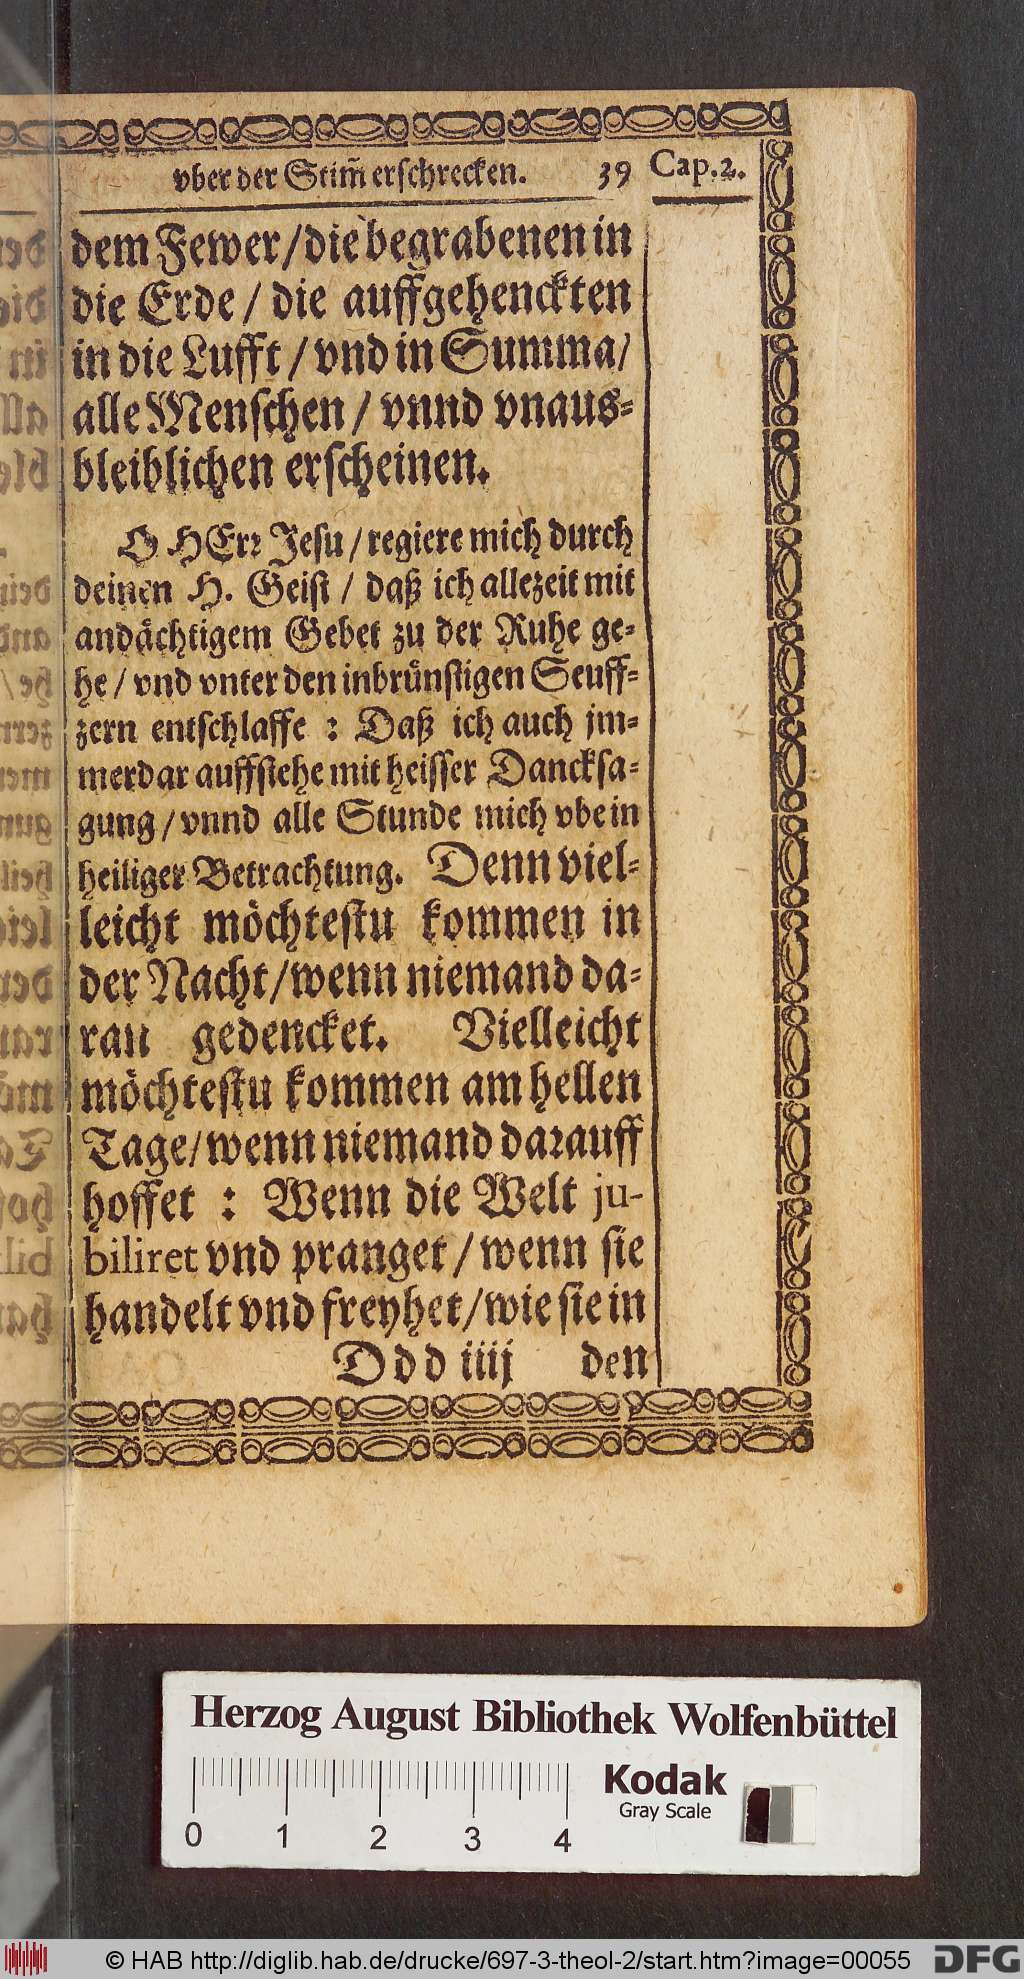 vber der Stim̃ erschrecken. 39 Cap. 2.
dem Fewer / die begrabenen in
die Erde / die auffgehenckten
in die Lufft / vnd in Summa /
alle Menschen / vnnd vnaus-
bleiblichen erscheinen.
O HErr Jesu / regiere mich durch
deinen H. Geist / daß ich allezeit mit
andächtigem Gebet zu der Ruhe ge-
he / vnd vnter den inbrünstigen Seuff-
zern entschlaffe : Daß ich auch jm-
merdar auffstehe mit heisser Dancksa-
gung / vnnd alle Stunde mich vbe in
heiliger Betrachtung. Denn viel-
leicht möchtestu kommen in
der Nacht / wenn niemand da-
ran gedencket. Vielleicht
möchtestu kommen am hellen
Tage / wenn niemand darauff
hoffet : Wenn die Welt ju-
biliret vnd pranget / wenn sie
handelt vnd freyhet / wie sie in
Ddd iiij den
Herzog August Bibliothek Wolfenbüttel
Kodak
Gray Scale
0 1 2 3 4
© HAB http://diglib.hab.de/drucke/697-3-theol-2/start.htm?image=00055 DFG